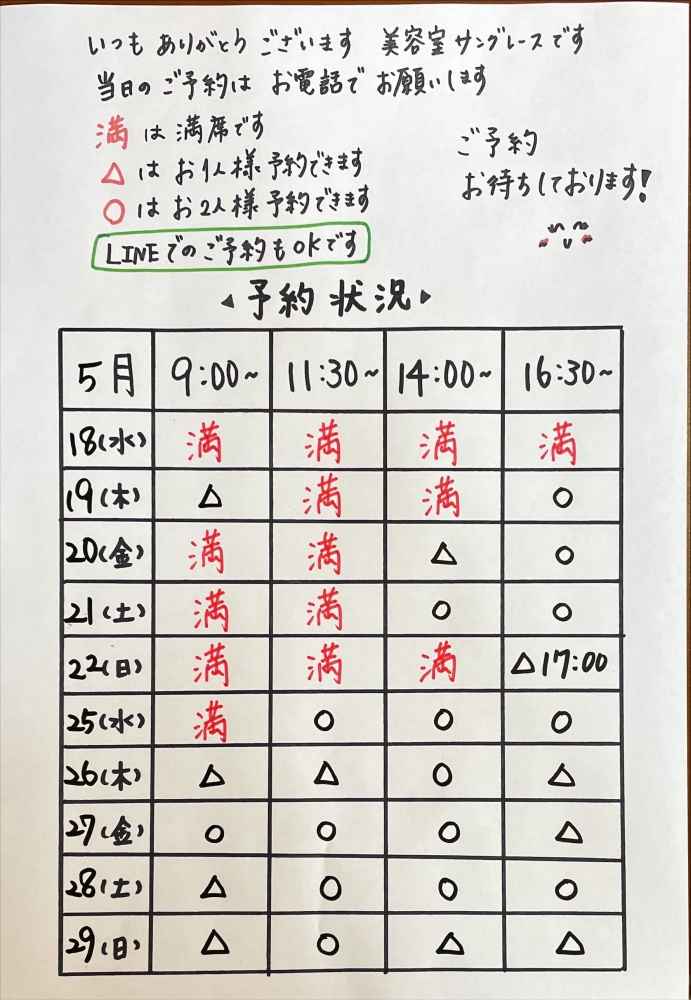 いつも ありがとう ございます 美容室 サングレースです
当日の ご予約は お電話で お願いします
満 は 満席です
△ は お1人様 予約できます
○ は お2人様 予約できます
LINEでの ご予約も OKです
ご予約
お待ちしております!
◀ 予約 状況 ▶
5月 9:00~ 11:30~ 14:00~ 16:30~
18(水) 満 満 満 満
19(木) △ 満 満 ○
20(金) 満 満 △ ○
21(土) 満 満 ○ ○
22(日) 満 満 満 △17:00
25(水) 満 ○ ○ ○
26(木) △ △ ○ △
27(金) ○ ○ ○ △
28(土) △ ○ ○ ○
29(日) △ ○ △ △